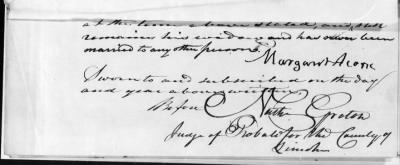 at the time above stated, and still
remains his widow and has never been
married to any other person.
Margaret Acorn
Sworn to and subscribed on the day
and year above written
Before Nath Groton
Judge of Probate for the County of
Lincoln